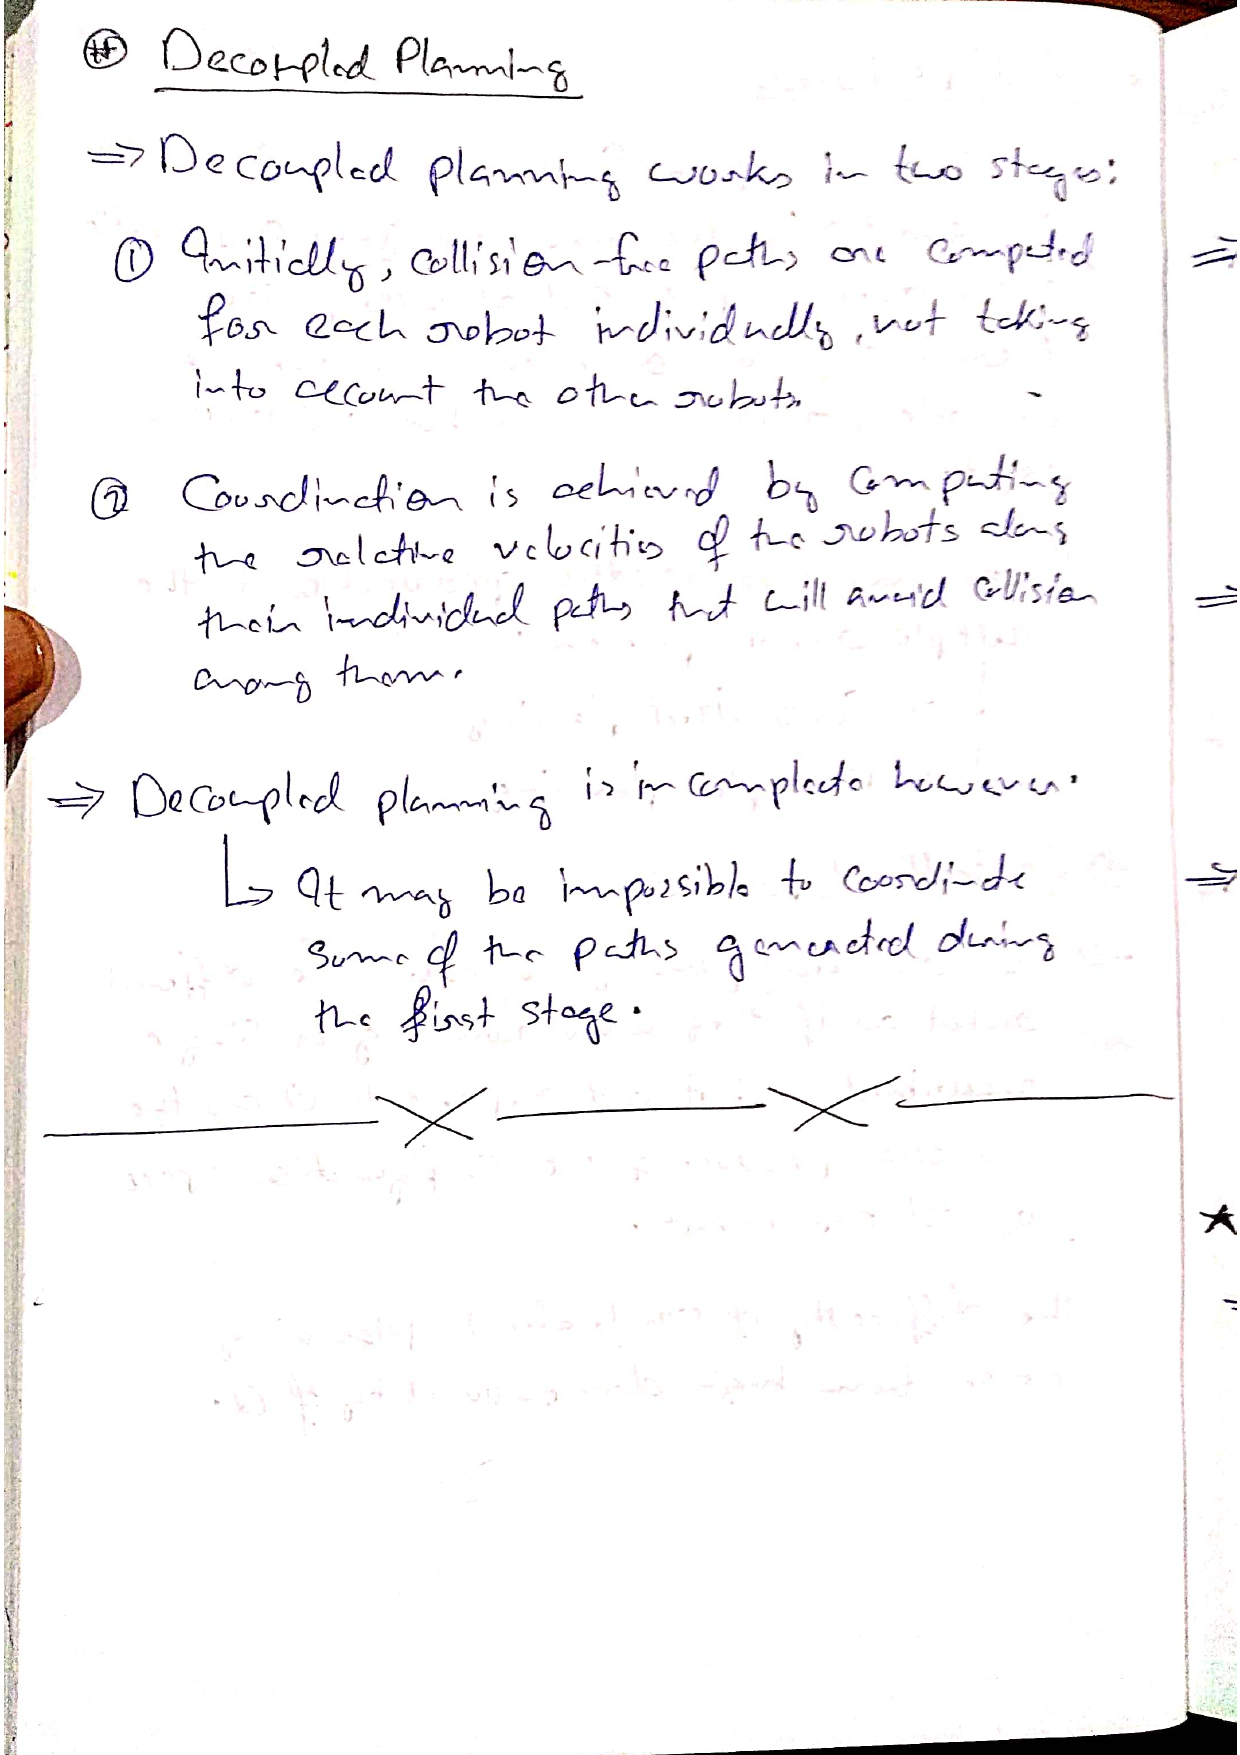 # Decoupled Planning
⇒ Decoupled planning works in two stages:
① Initially, collision-free paths are computed
for each robot individually, not taking
into account the other robots.
② Coordination is achieved by computing
the relative velocities of the robots along
their individual paths that will avoid collision
among them.
⇒ Decoupled planning is incomplete however.
↳ It may be impossible to coordinate
some of the paths generated during
the first stage.